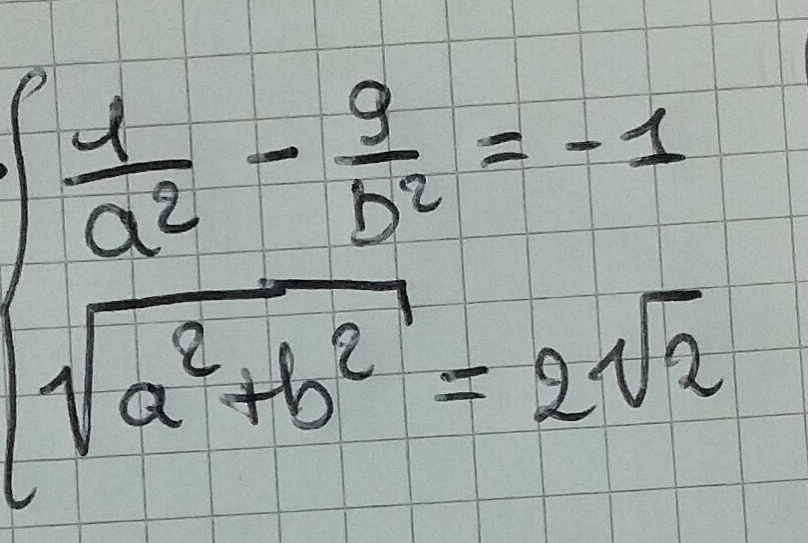 1/a² - 9/b² = -1
√(a²+b²) = 2√2